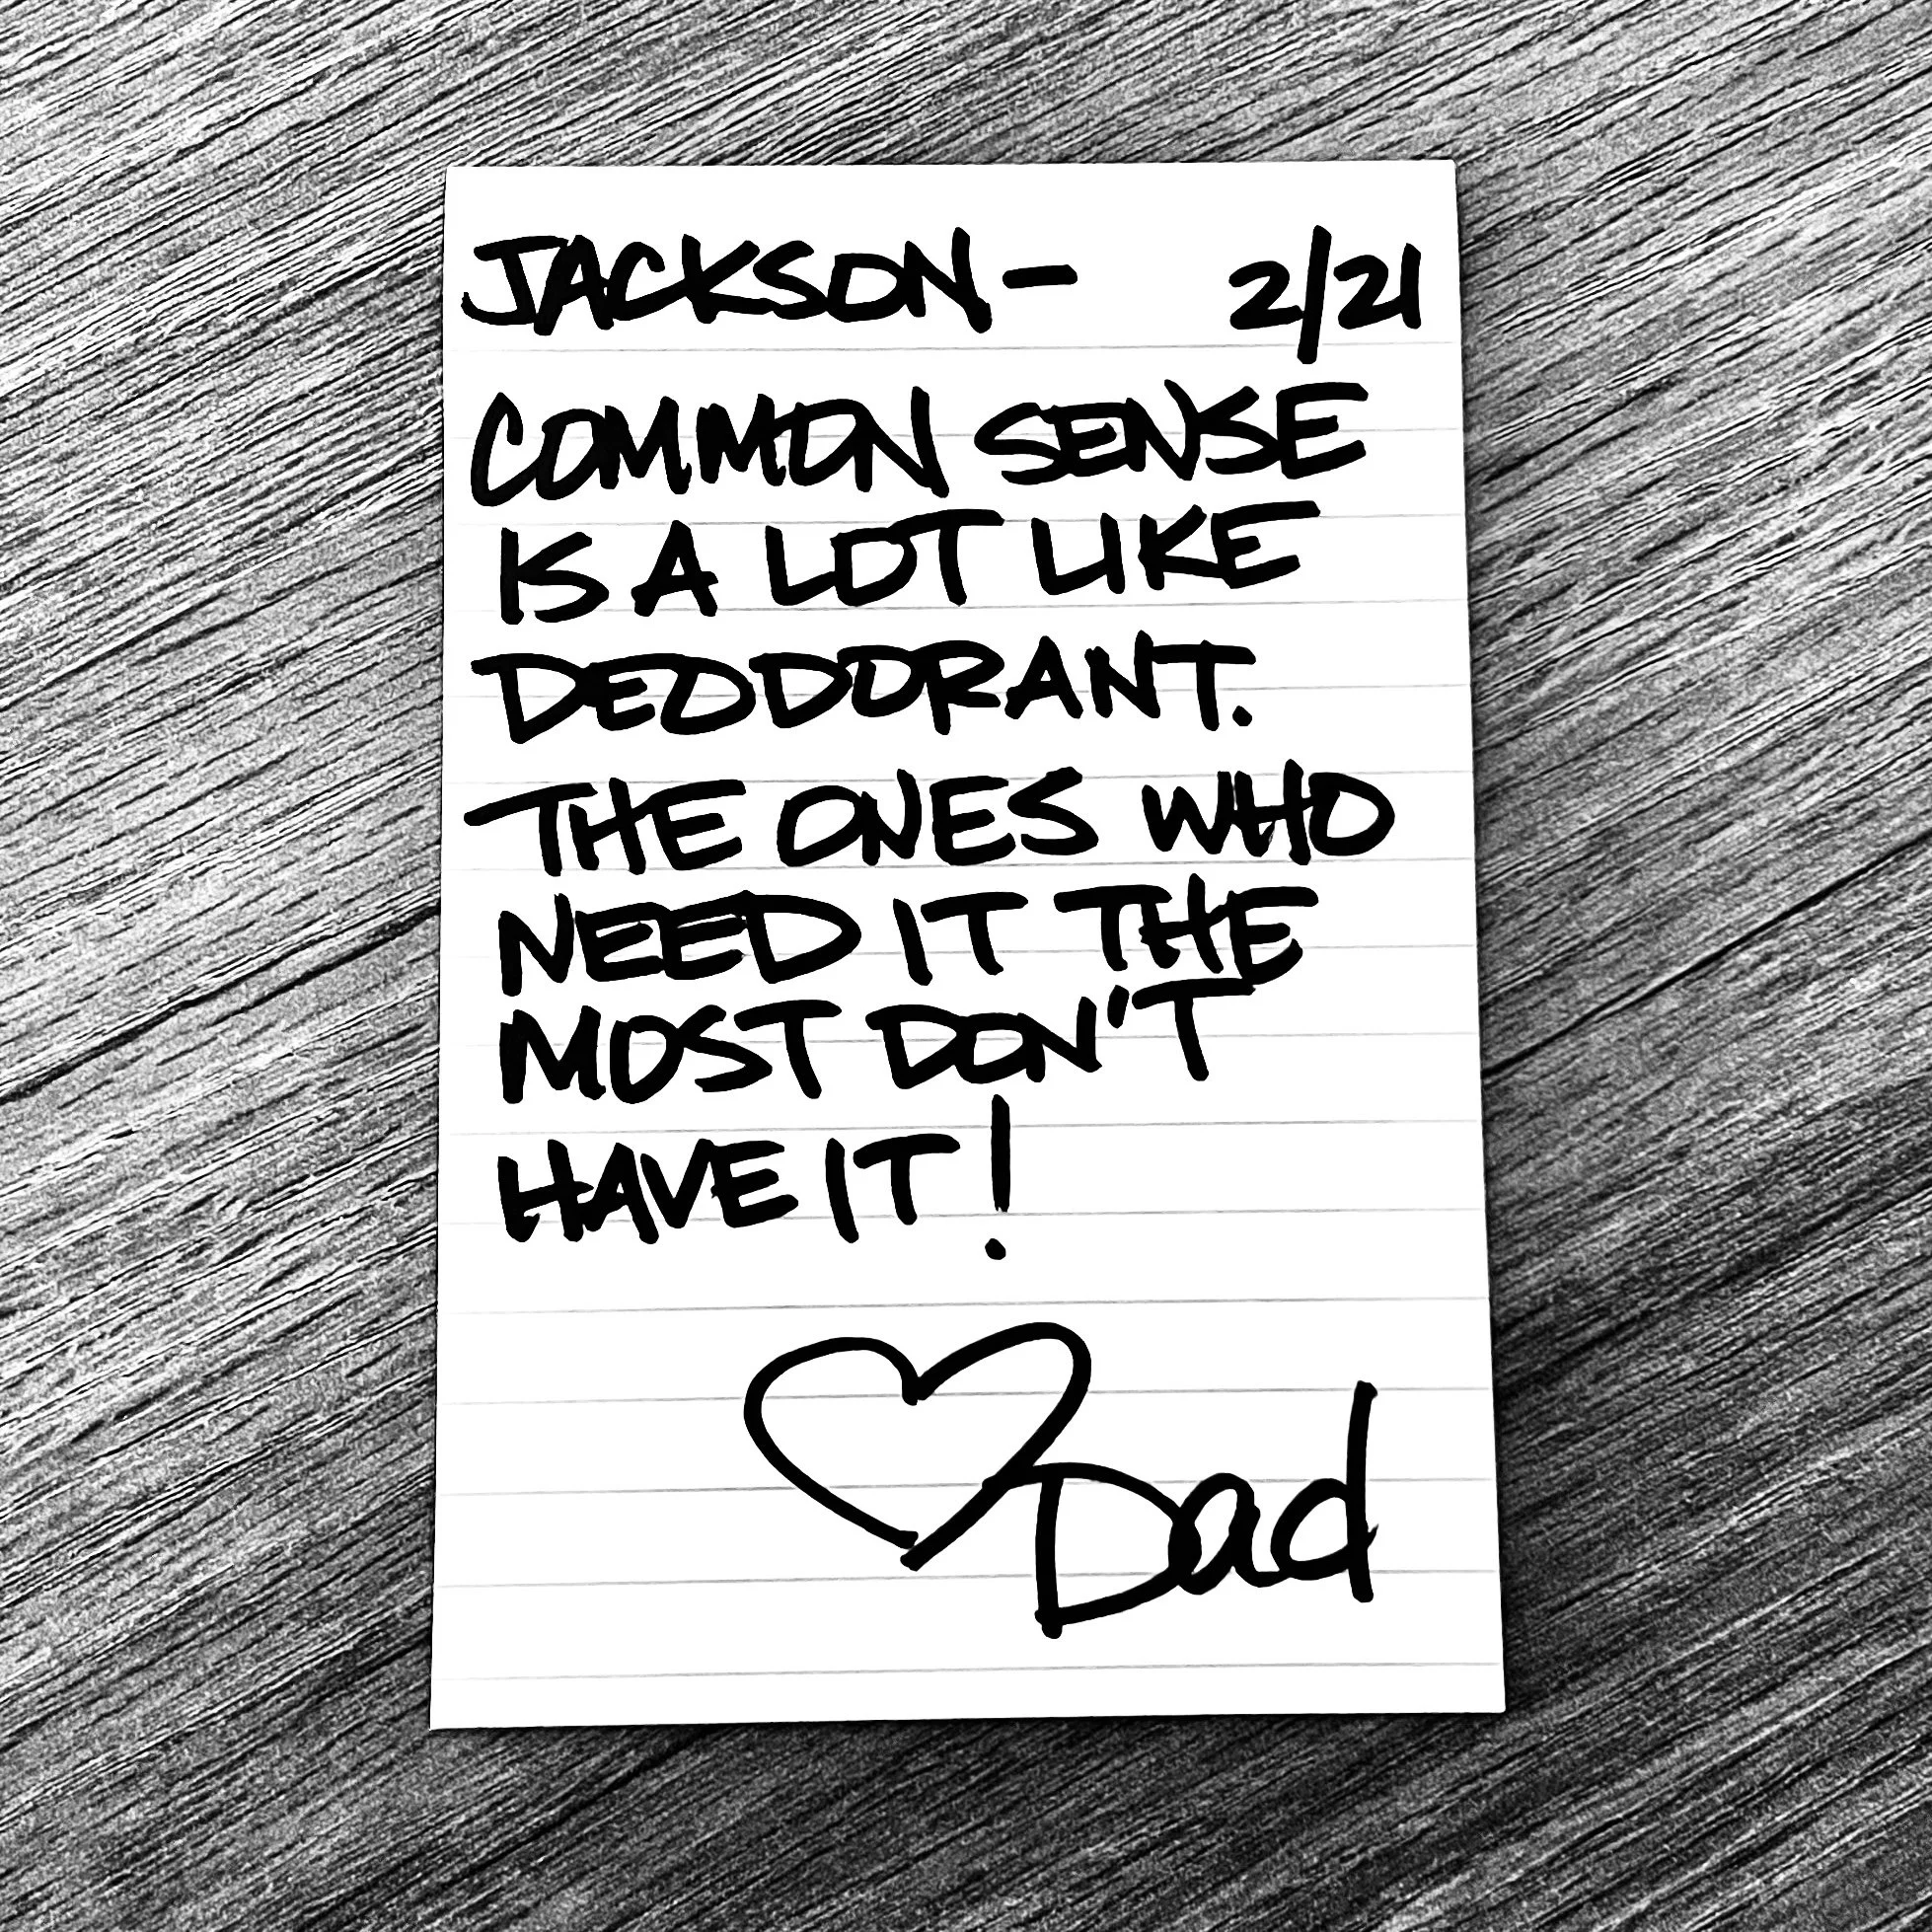 JACKSON- 2/21
COMMON SENSE
IS A LOT LIKE
DEODORANT.
THE ONES WHO
NEED IT THE
MOST DON'T
HAVE IT!
Dad